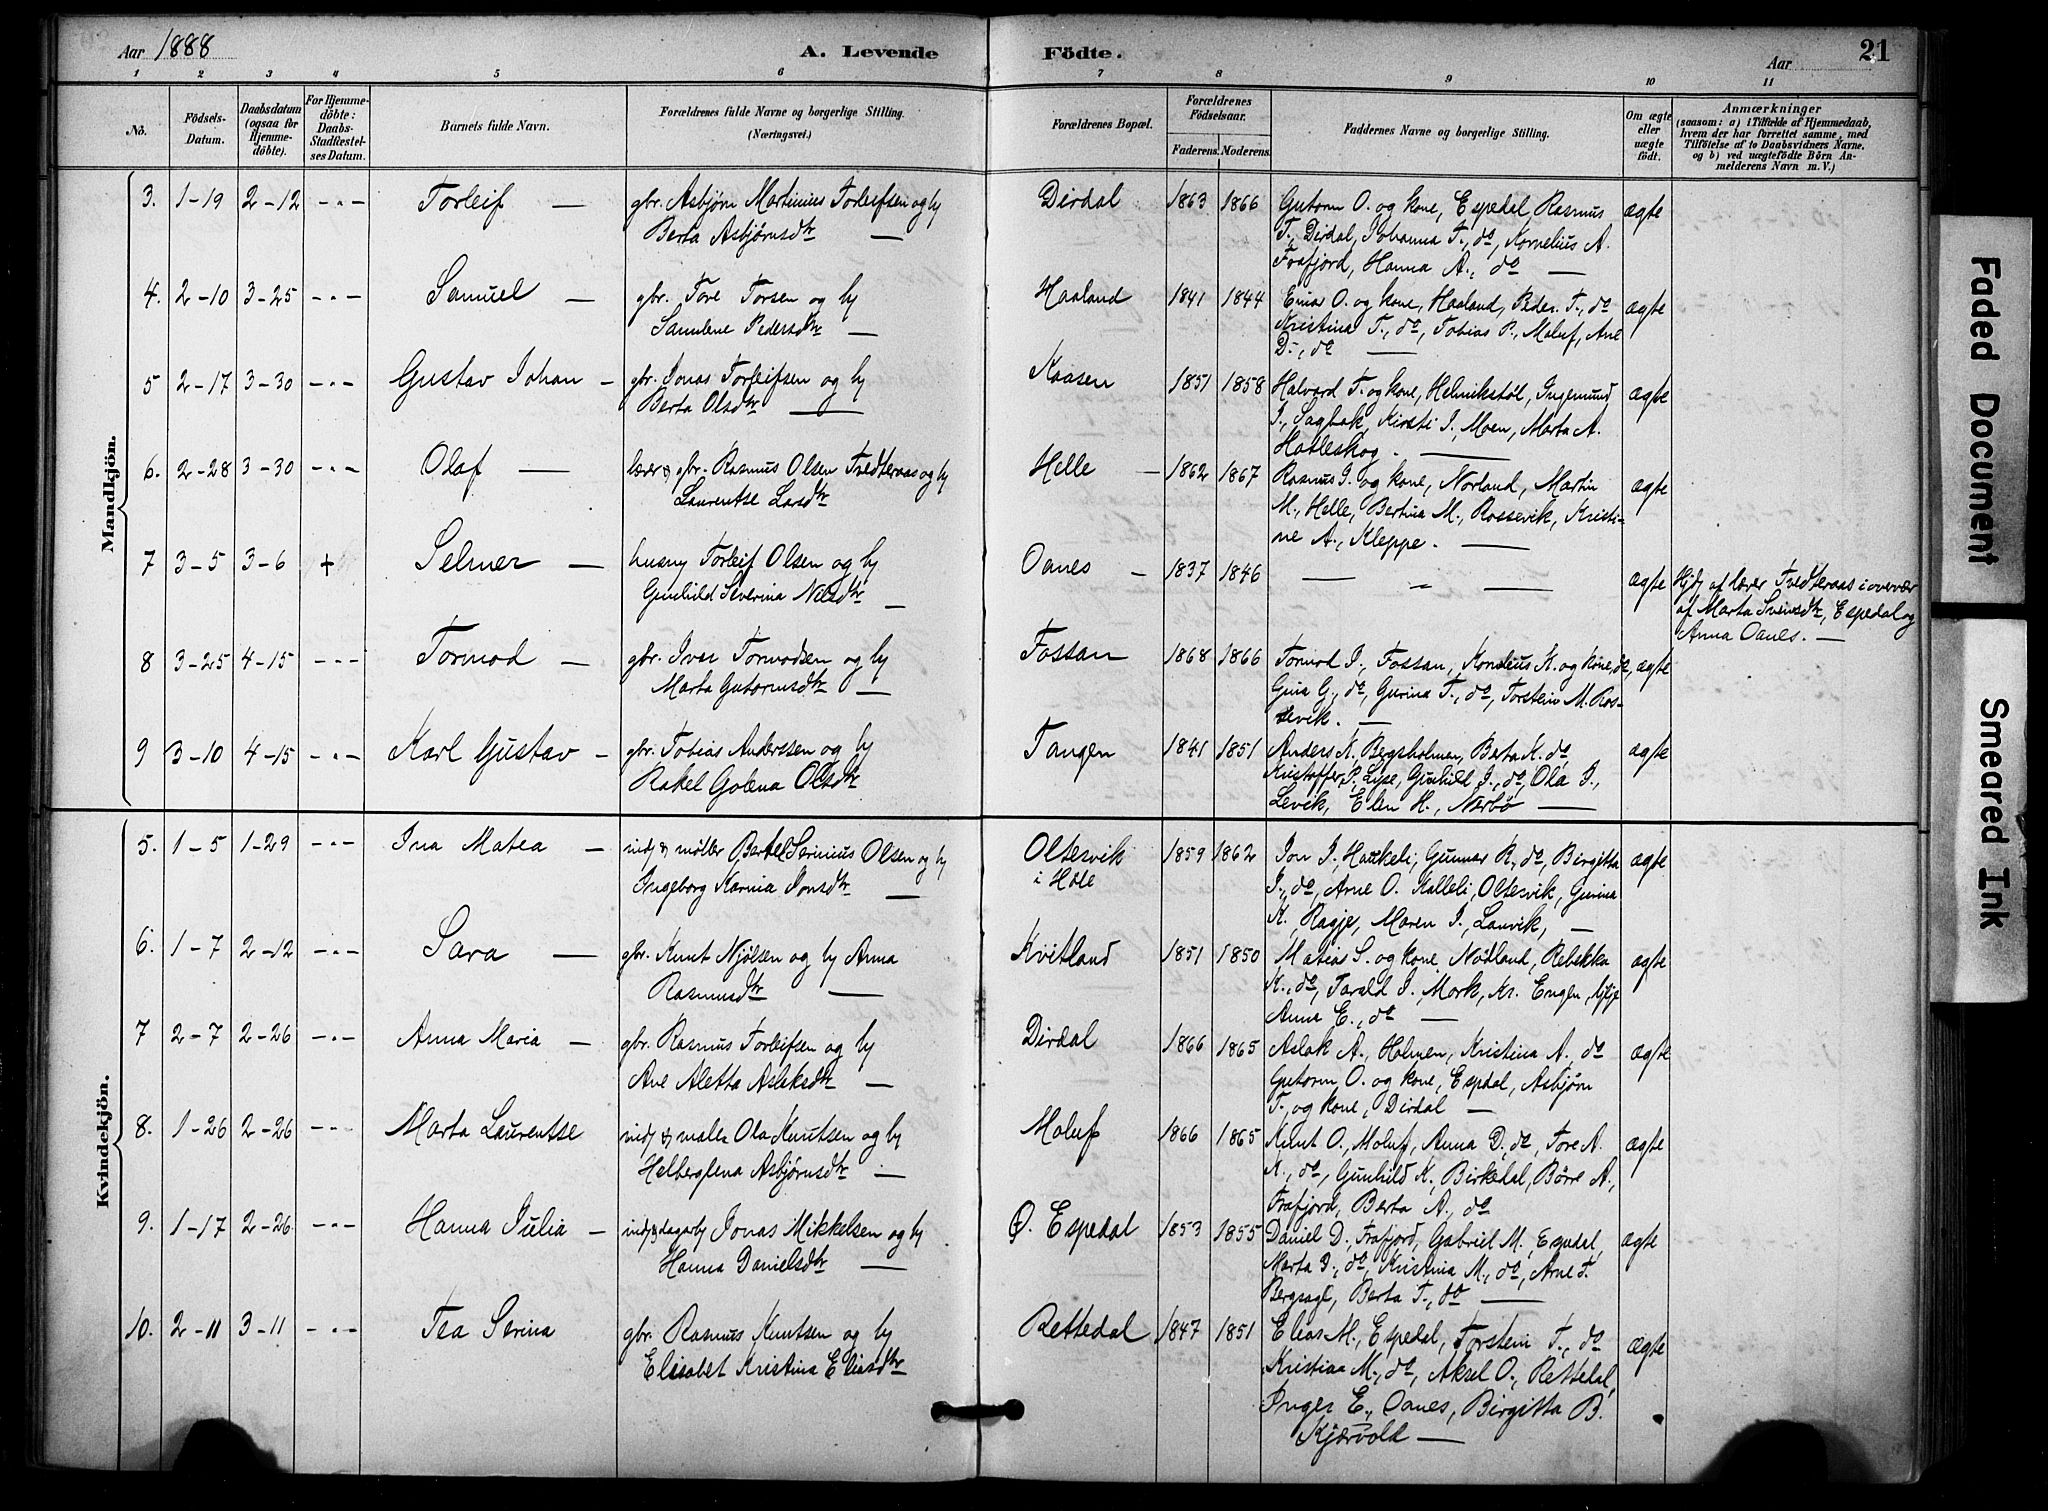 Aar 1888
A. Levende Födte.
Aar
21
1 2 3 4 5 6 7 8 9 10 11
No.
Födsels-Datum.
Daabsdatum (ogsaa for Hjemme-döbte).
For Hjemme-döbte: Daabs-Stadfæstel-ses Datum.
Barnets fulde Navn.
Forældrenes fulde Navne og borgerlige Stilling.
(Næringsvei.)
Forældrenes Bopæl.
Forældrenes Födselsaar.
Faderens. Moderens.
Faddernes Navne og borgerlige Stilling.
Om ægte eller uægte født.
Anmærkninger
(saasom: a) i Tilfælde af Hjemmedaab,
hvem der har forrettet samme, med
Tilföielse af to Daabsvidners Navne,
og b) ved uægtefödte Börn An-
melderens Navn m. V.)
Mandkjön.
3. 1-19 2-12 -"- Torleif — gbr. Asbjørn Martinius Torleifsen og h/ Dirdal 1863 1866 Gutorm O. og kone, Espedal, Rasmus ægte
Berta Asbjørnsdtr — T., Dirdal, Johanna T., do, Kornelius A.
Frafjord, Hanna A., do —
4. 2-10 3-25 -"- Samuel — gbr. Tore Torsen og h/ Haaland 1841 1844 Einar O. og kone, Haaland, Peder T., do ægte
Samlene Pedersdtr — Kristina T., do, Tobias P., Maluf, Ane
D., do —
5 2-17 3-30 -"- Gustav Johan — gbr. Jonas Torleifsen og h/ Kaasen 1851 1858 Halvard T. og kone, Helmikstøl, Ingemund ægte
Berta Olsdtr — I., Sagbak, Kirsti I., Moen, Marta A.
Hatleskog. —
6. 2-28 3-30 -"- Olaf — lærer & gbr. Rasmus Olsen Tvedteraas og h/ Helle — 1862 1867 Rasmus I. og kone, Norland, Martin ægte
Laurentse Larsdtr M., Helle, Bertina M., Rossevik, Kristi-
ne A., Kleppe. —
7 3-5 3-6 + Selmer — husmy Torleif Olsen og h/ Oanes — 1837 1846 — " — ægte Hjdy af lærer Tvedteraas i overvær
Gunhild Severina Nilsdtr — af Marta Svensdtr, Espedal og
Anna Oanes. —
8 3-25 4-15 -"- Tormod — gbr. Iver Tormodsen og h/ Fossan 1868 1866 Tormod I., Fossan, Kornelius K. og kone, do, ægte
Marta Gutormsdtr — Gina G., do, Gurina T., do, Torstein M. Ros-
sevik. —
9 3-10 4-15 -"- Karl Gustav — gbr. Tobias Anderssen og h/ Tangen 1841 1851 Anders K. Bergsholmen, Berta K. do, ægte
Rakel Golena Olsdtr Kristoffer P. Lyse, Gunhild I., do, Ola I.,
Levik, Elen H., Nærbø —
Kvindekjön.
5. 1-5 1-29 -"- Ina Matea — indj & møller Bertel Serinius Olsen og h/ Oltesvik 1859 1862 Jon I., Haukeli, Gunnar R., do, Birgitta ægte
Ingeborg Karina Jonsdtr — i Høle I., do, Arne O. Kalleli, Oltesvik, Gurina
K., Ragje, Maren I., Lauvik, —
6. 1-7 2-12 -"- Sara — gbr. Knut Njølsen og h/ Anna Kvitland 1851 1850 Matias S. og kone, Nødland, Rebekka ægte
Rasmusdtr — K., do, Tarald I., Mork, Kr. Engen,
Anna E., do —
7 2-7 2-26 -"- Anna Maria — gbr. Rasmus Torleifsen og h/ Dirdal 1866 1865 Aslak A., Holmen, Kristina A., do ægte
Ane Aletta Aslaksdtr — Gutorm O. og kone, Espdal, Asbjørn
T., og kone, Dirdal —
8. 1-26 2-26 -"- Marta Laurentse indj & maler Ola Knutsen og h/ Maluf 1866 1865 Knut O., Maluf, Anna D., do, Tore A. ægte
Helberglena Asbjørnsdtr — K., do, Gunhild K., Birkedal, Børre A.,
Frafjord, Berta A., do
9. 1-17 2-26 -"- Hanna Julia — indj & dagarbj Jonas Mikkelsen og h/ Ø. Espedal 1853 1855 Daniel D., Frafjord, Gabriel M., Espedal, ægte
Hanna Danielsdtr — Marta D., do, Kristina M., do, Arne T.
Bergsagl, Berta T., do —
10. 2-11 3-11 -"- Tea Serina gbr. Rasmus Knutsen og h/ Rettedal 1847 1851 Elias M., Espedal, Torstein T., do ægte
Elisabet Kristina Eliasdtr Kristina M., do, Aksel O., Rettedal,
Inger E., Oanes, Birgitta B.
Kjærvold —
Faded Document
Smeared Ink